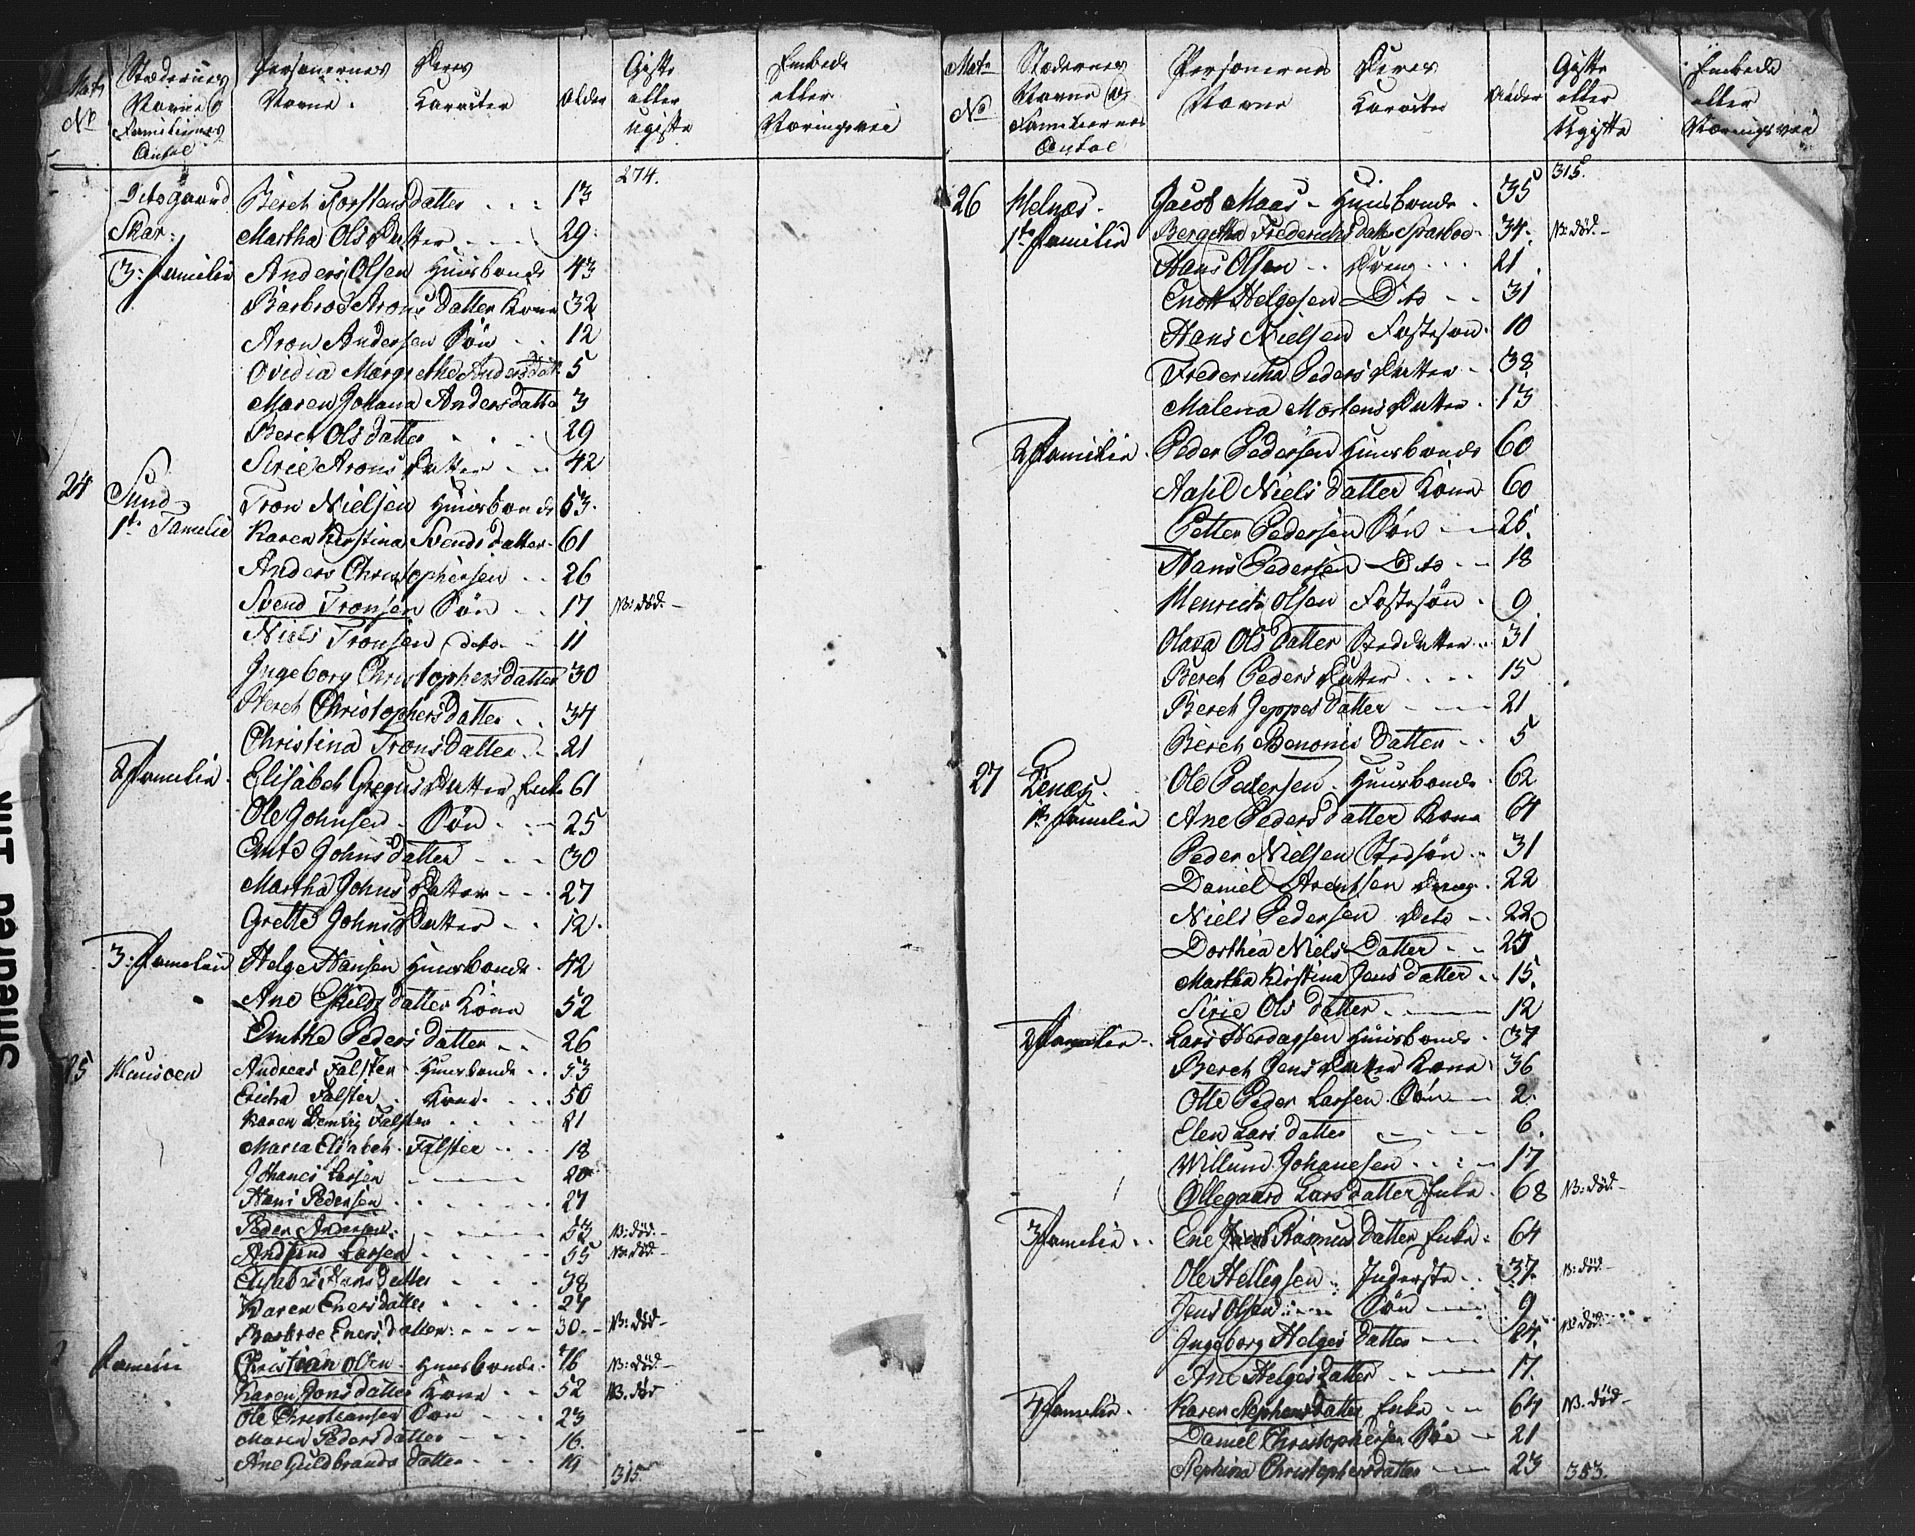 Mat: Stædernes Personernes Deres Gifte Embede
No Navne og Navne. Karacter Alder eller eller
Familiernes ugifte Næringsvei
Antal
274.
Ditogaard Bereh Torstens datter 13
Skar: Martha Ols Datter 29
3: Familie Anders Olsen Huusbonde 43
Barbroe Arons datter Kone 32
Aron Andersen Søn 12
Ovidia Margrethe Anders datt: 5
Maren Johana Andersdatter 3
Bereh Olsdatter 29
Sirie Arons Datter 42
24 Sund Tron Nielsen Huusbonde 63.
1te Familie Karen Kirstina Svends datter 61
Anders Christophersen 26
Svend Tronsen Søn 17 NB: død.
Niels Tronsen dito 11
Ingeborg Christophersdatter 30
Bereh Christophersdatter 34
Christina Tronsdatter 21
2 Familie. Elisabeh Gregus Datter Enke 61
Ole Johnsen Søn 25
Johnsdatter 30
Martha Johns Datter 27
Grethe Johns Datter 12.
3: Familie Helge Hansen Huusbonde 42
Ane Eskilds datter Kone 52
Peders datter 26
25 Huusoen Andreas Falster Huusbonde 53
Ericha Falster Kone 50
Karen Falster 21
Maria Elisabeh Falster 18
Johanes Larsen 20
Hans Pedersen 27
Peder Andersen 52 NB: død.
Larsen 55 NB: død.
Elisabeh Hansdatter 38
Karen Enersdatter 27
Barbroe Eners datter 30 NB: død.
Familie Christian Olsen Huusbonde 76 NB: død.
Karen Jonsdatter Kone 52 NB: død
Ole Christiansen Søn 23
Maren Pedersdatter 16.
Ane Guldbrands datter 19
315.
Mat: Stædernes Personernes Deres Gifte Embede
No Navne og Navne Karacter Alder eller eller
Familiernes Ugifte Næringsvei
Antal
315.
26 Helnes. Jacob Maas Huusbonde 35
1te Familie Bergitha Frederichs datter Sparboe 34. NB: død.
Hans Olsen Dreng 21
Enok Helgesen Dito 31
Hans Nielsen Fostesøn 10
Fredericha Peders Datter 38
Malena Mortens Datter 13
2 Familie. Peder Pedersen Huusbonde 60
Aasel Niels datter Kone 60
Petter Pedersen Søn 26.
Hans Pedersen Dito 18
Henrich Olsen Fostesøn 9.
Olava Ols datter Steddatter 31
Bereh Peders Datter 15
Bereh Jeppes datter 21
Bereh Benonis datter 5
27 Ole Pedersen Huusbonde 62
1te Familie Ane Peders datter Kone 64
Peder Nielsen Stedsøn 31
Daniel Arentsen Dreng 22
Niels Pedersen Dito 22
Dorthea Niels Datter 27
Martha Kirstina Jens datter 15.
Sirie Ols datter 12
2 Familie. Lars Herdagsen Huusbonde 37
Bereh Jens Datter Kone 36
Otte Peder Larsen Søn 2.
Elen Lars datter 6.
Willum Johanesen 17
Ollegaard Lars datter Enke 68 NB: død.
3 Familie Ene Rasmus datter Enke 64
Ole Helligsen Inderste 37. NB: død.
Jens Olsen Søn 9
Ingeborg Helges datter 24. NB: død.
Ane Helges datter 17.
4 Familie. Karen Stephensdatter Enke 64 NB: død.
Daniel Christophersen Søn 21
Stephina Christophersdatter 23
353.